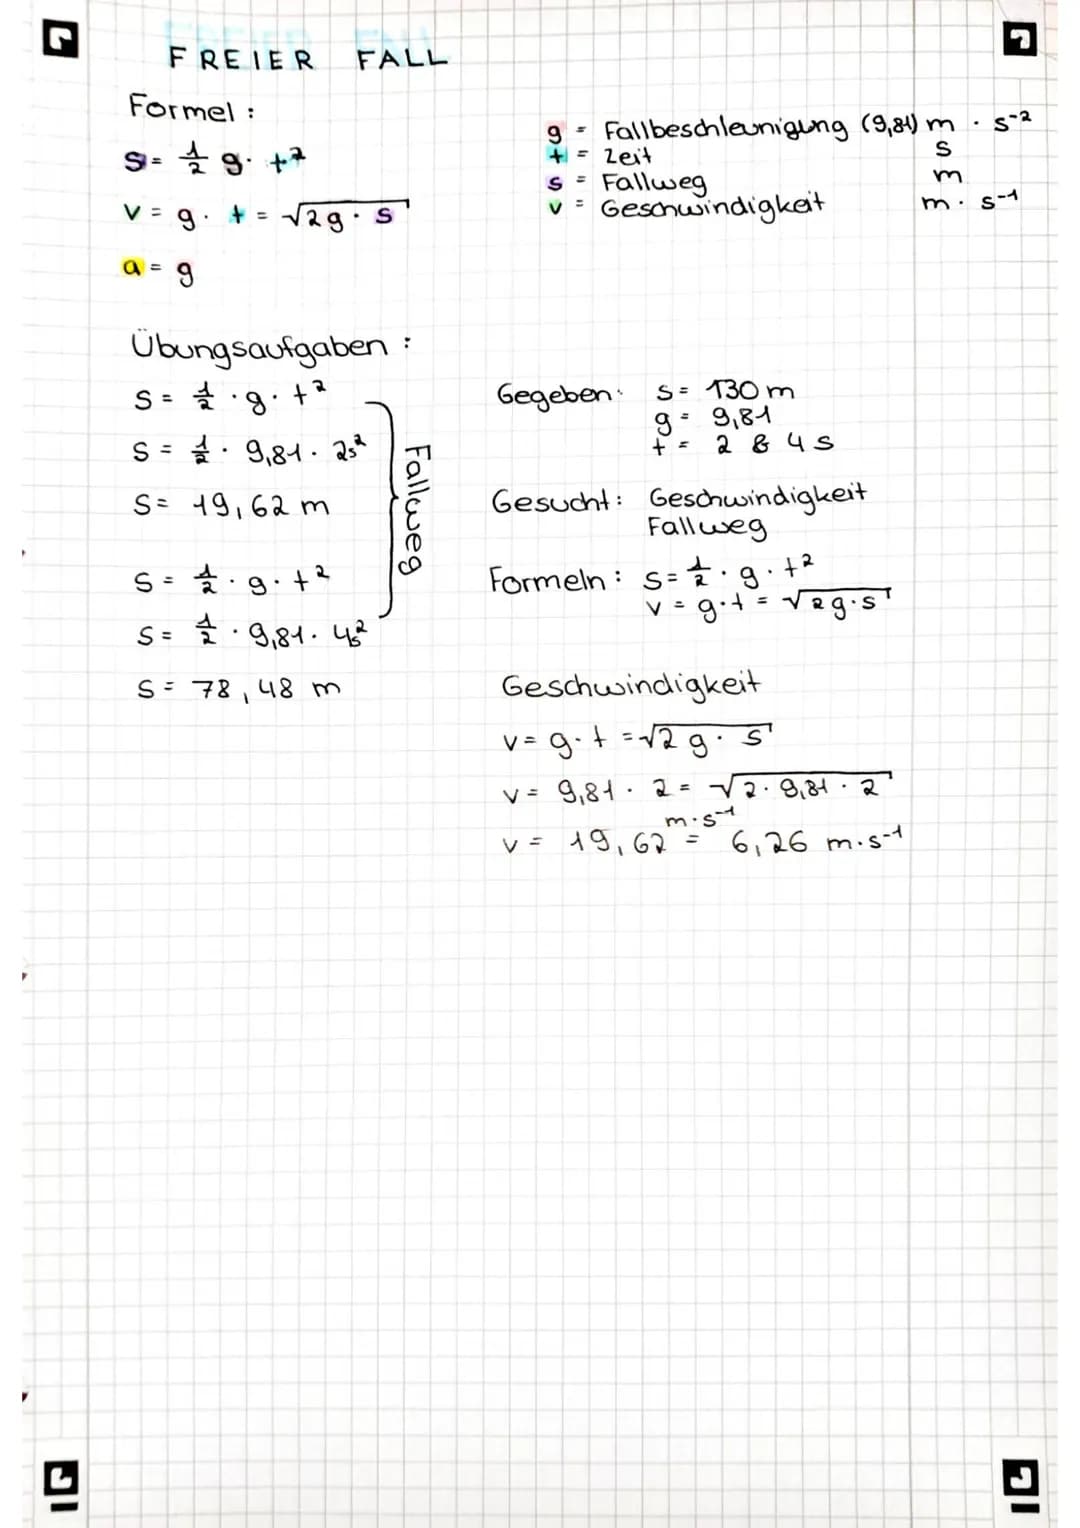 FREIER FALL
Formel :
s = 1/2 g · t²
v = g · t = √2g · s
a = g
g = Fallbeschleunigung (9,81) m · s⁻²
t = Zeit s
s = Fallweg m
v = Geschwindigkeit m · s⁻¹
Übungsaufgaben :
s = 1/2 · g · t²
s = 1/2 · 9,81 · 2s²
s = 19,62 m
s = 1/2 · g · t²
s = 1/2 · 9,81 · 4s²
s = 78,48 m
Fallweg
Gegeben: s = 130 m
g = 9,81
t = 2 & 4 s
Gesucht: Geschwindigkeit
Fallweg
Formeln : s = 1/2 · g · t²
v = g · t = √2g · s
Geschwindigkeit
v = g · t = √2 g · s
v = 9,81 · 2 = √2 · 9,81 · 2
v = 19,62 m·s⁻¹ = 6,26 m·s⁻¹